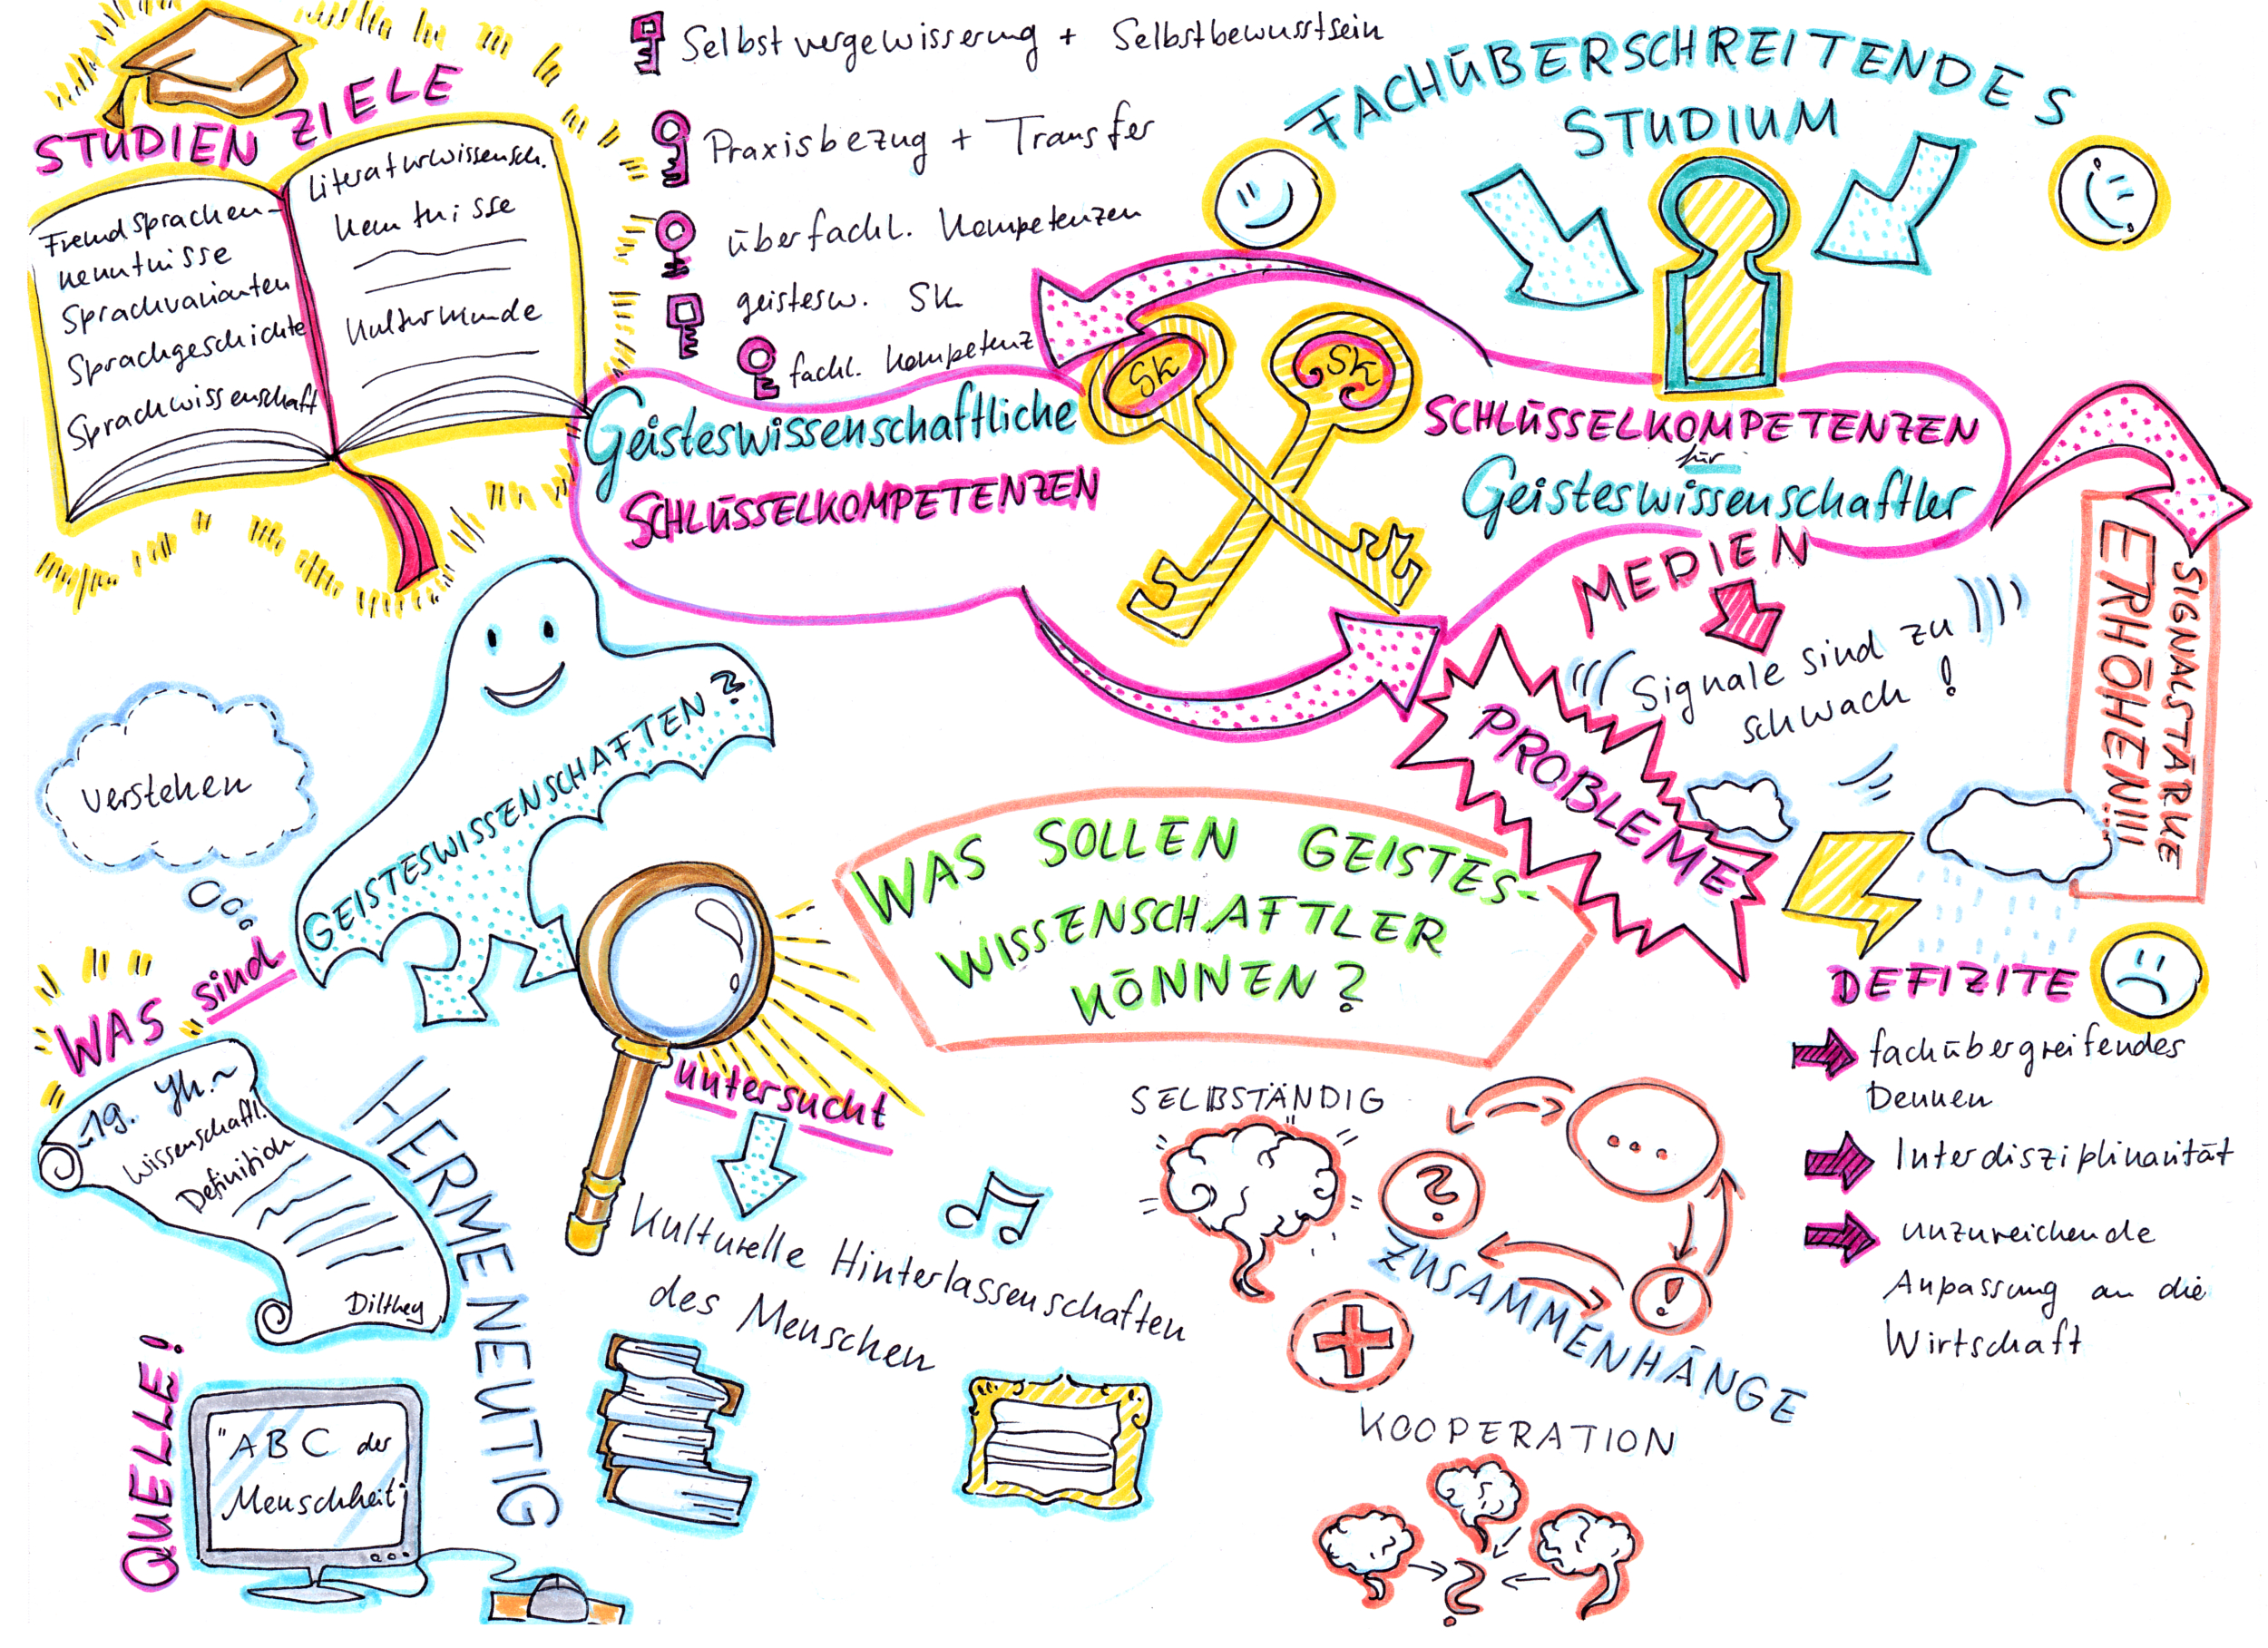 STUDIEN ZIELE
Fremdsprachen-
kenntnisse
Sprachvarianten
Sprachgeschichte
Sprachwissenschaft
Literaturwissensch.
Kenntnisse
Kulturkunde
Selbstvergewisserung + Selbstbewusstsein
Praxisbezug + Transfer
überfachl. Kompetenzen
geistesw. SK
fachl. Kompetenz
FACHÜBERSCHREITENDES
STUDIUM
Geisteswissenschaftliche
SCHLÜSSELKOMPETENZEN
SK
SK
SCHLÜSSELKOMPETENZEN
für
Geisteswissenschaftler
MEDIEN
Signale sind zu
schwach!
SIGNALSTÄRKE
ERHÖHEN!!!
PROBLEME
DEFIZITE
fachübergreifendes
Denken
Interdisziplinarität
unzureichende
Anpassung an die
Wirtschaft
WAS SOLLEN GEISTES-
WISSENSCHAFTLER
KÖNNEN?
verstehen
WAS sind
GEISTESWISSENSCHAFTEN?
19. Jh.
Wissenschaftl.
Definition
Dilthey
HERMENEUTIG
QUELLE!
"ABC der
Menschheit"
untersucht
Kulturelle Hinterlassenschaften
des Menschen
SELBSTÄNDIG
...
?
!
ZUSAMMENHÄNGE
KOOPERATION
?